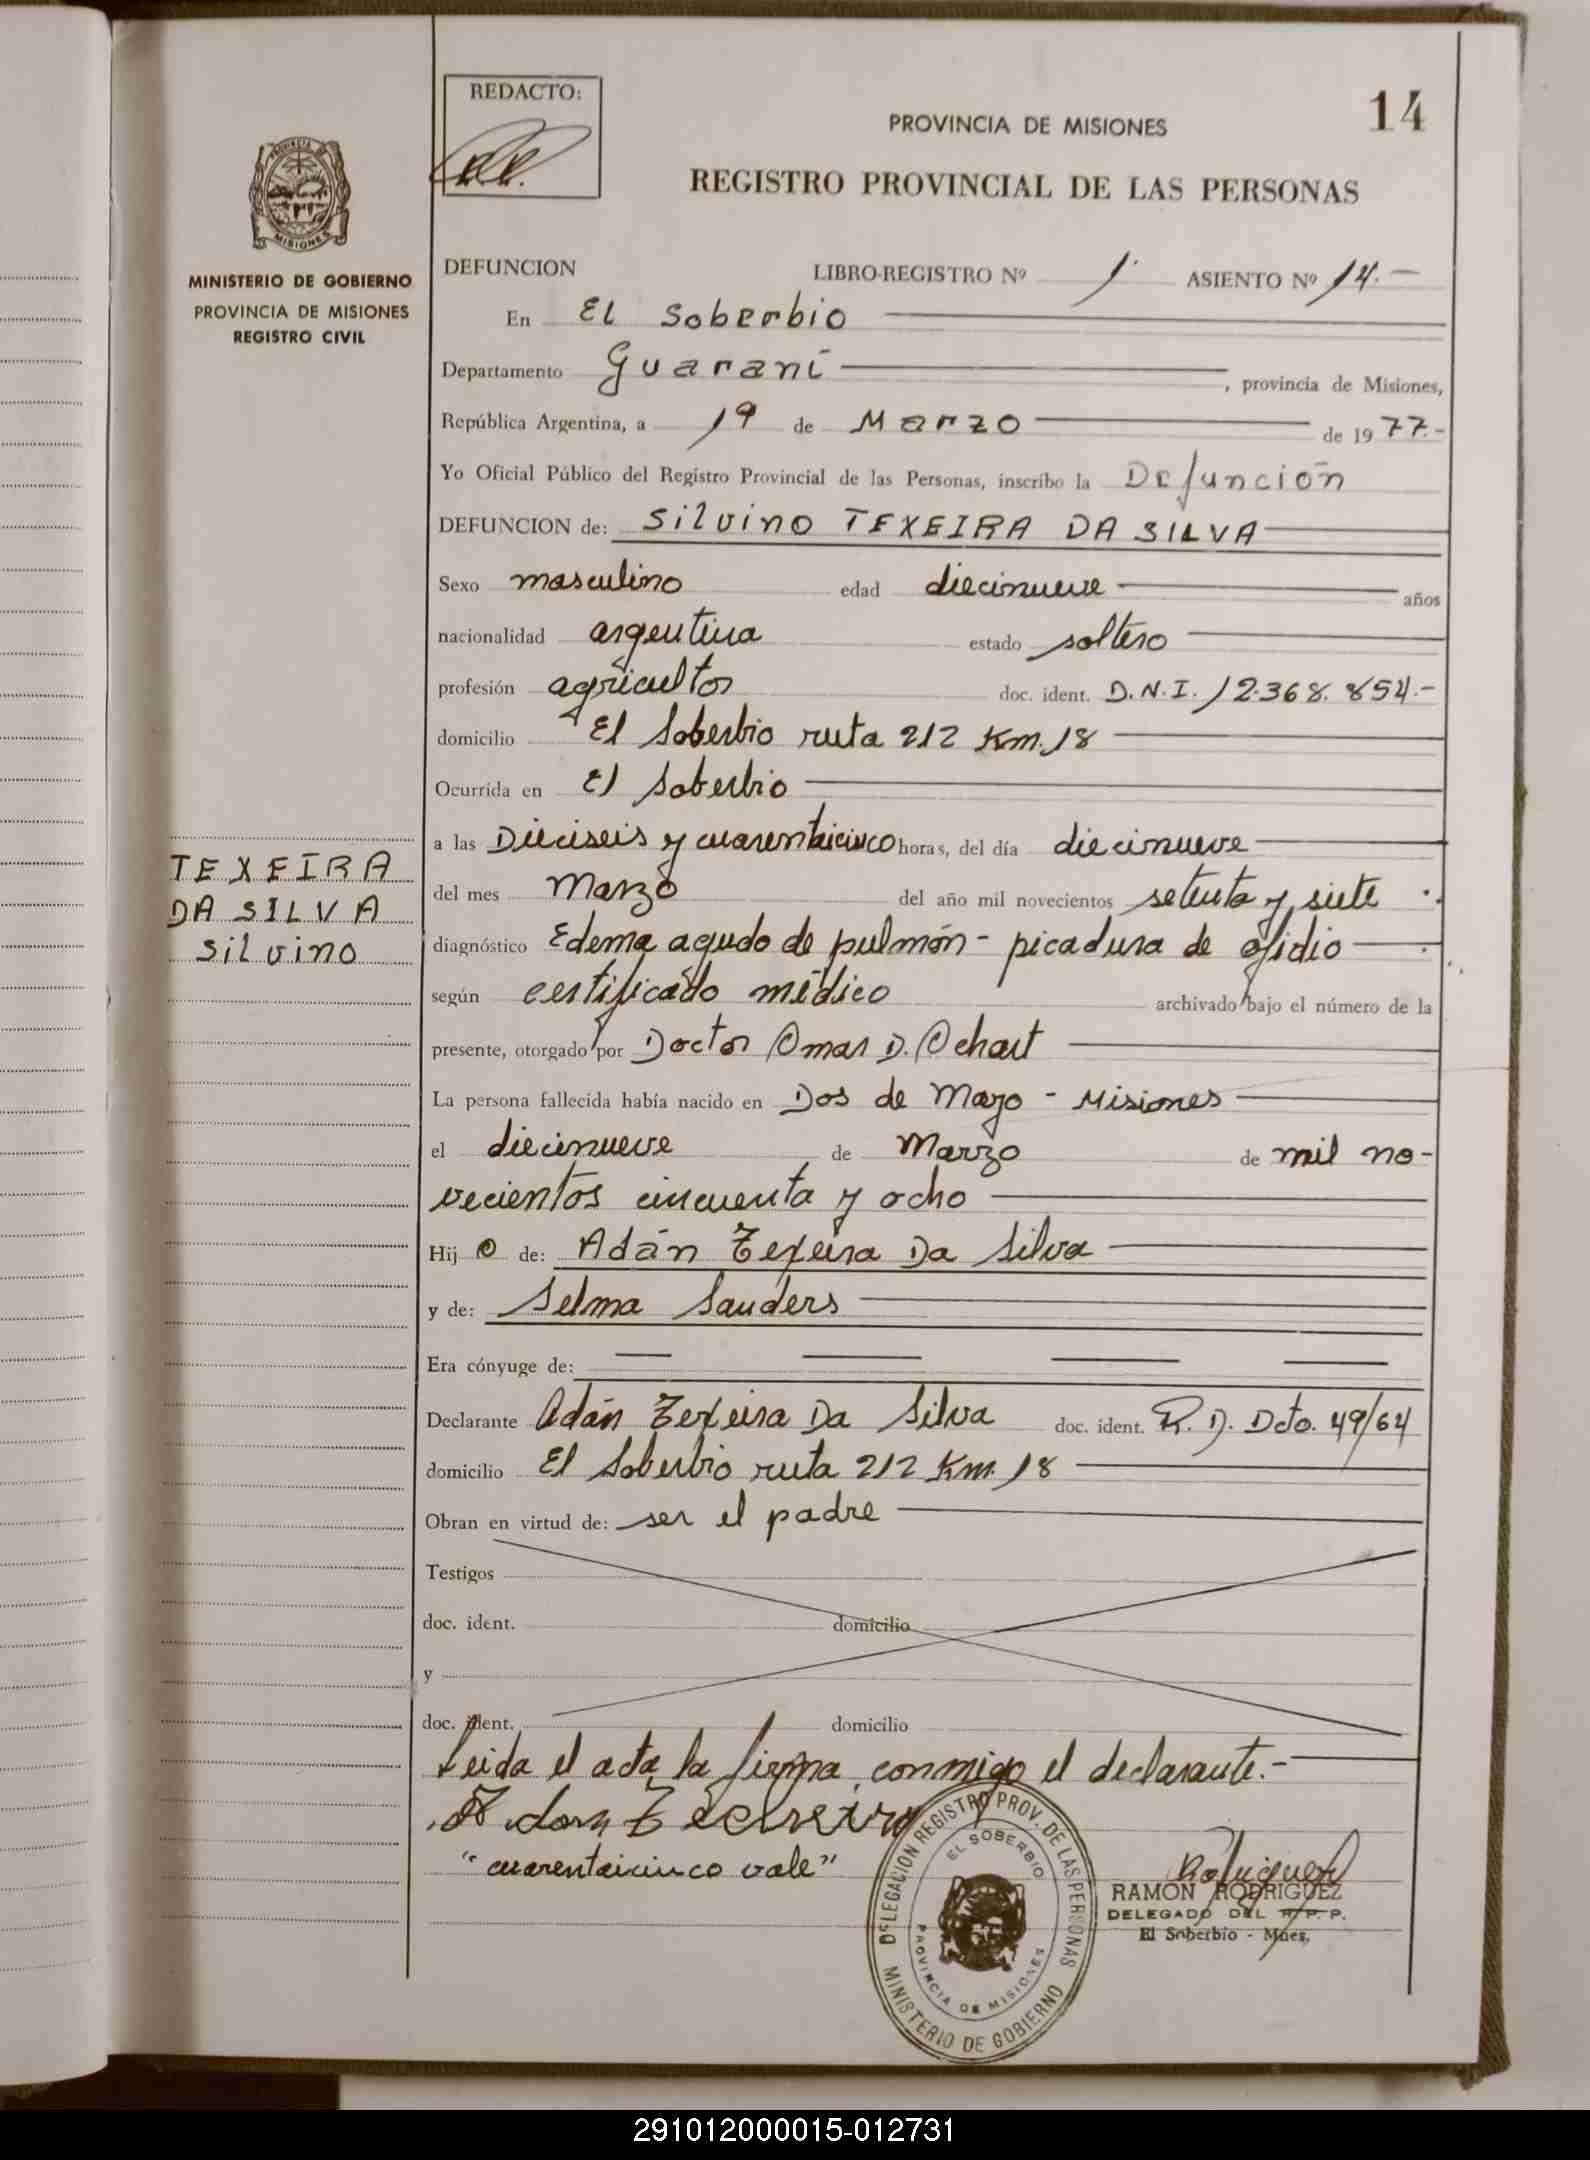 REDACTO:
14
PROVINCIA DE MISIONES
REGISTRO PROVINCIAL DE LAS PERSONAS
MISIONES
MINISTERIO DE GOBIERNO
PROVINCIA DE MISIONES
REGISTRO CIVIL
DEFUNCION LIBRO-REGISTRO Nº 1 ASIENTO Nº 14.-
En El Soberbio
Departamento Guaraní, provincia de Misiones,
República Argentina, a 19 de Marzo de 1977.-
Yo Oficial Público del Registro Provincial de las Personas, inscribo la Defunción
DEFUNCION de: Silvino TEXEIRA DA SILVA
Sexo masculino edad diecinueve años
nacionalidad argentina estado soltero
profesión agricultor doc. ident. D.N.I. 12.368.854.-
domicilio El Soberbio ruta 212 Km. 18
Ocurrida en El Soberbio
a las Dieciseis y cuarentaicinco horas, del día diecinueve
del mes Marzo del año mil novecientos setenta y siete
diagnóstico Edema agudo de pulmón - picadura de ofidio
según certificado médico archivado bajo el número de la
presente, otorgado por Doctor Omar D. Ochart
La persona fallecida había nacido en Dos de Mayo - Misiones
el diecinueve de Marzo de mil no-
vecientos cincuenta y ocho
Hijo de: Adán Texeira Da Silva
y de: Selma Sauders
Era cónyuge de:
Declarante Adán Texeira Da Silva doc. ident. R.D. Dcto. 49/64
domicilio El Soberbio ruta 212 Km. 18
Obran en virtud de: ser el padre
Testigos
doc. ident. domicilio
y
doc. ident. domicilio
Leida el acta, la firma, conmigo el declarante.-
"cuarentaicinco vale"
TEXEIRA
DA SILVA
Silvino
DELEGACION REGISTRO PROV. DE LAS PERSONAS
EL SOBERBIO
PROVINCIA DE MISIONES
MINISTERIO DE GOBIERNO
RAMON RODRIGUEZ
DELEGADO DEL R.P.P.
El Soberbio - Mnes.
291012000015-012731